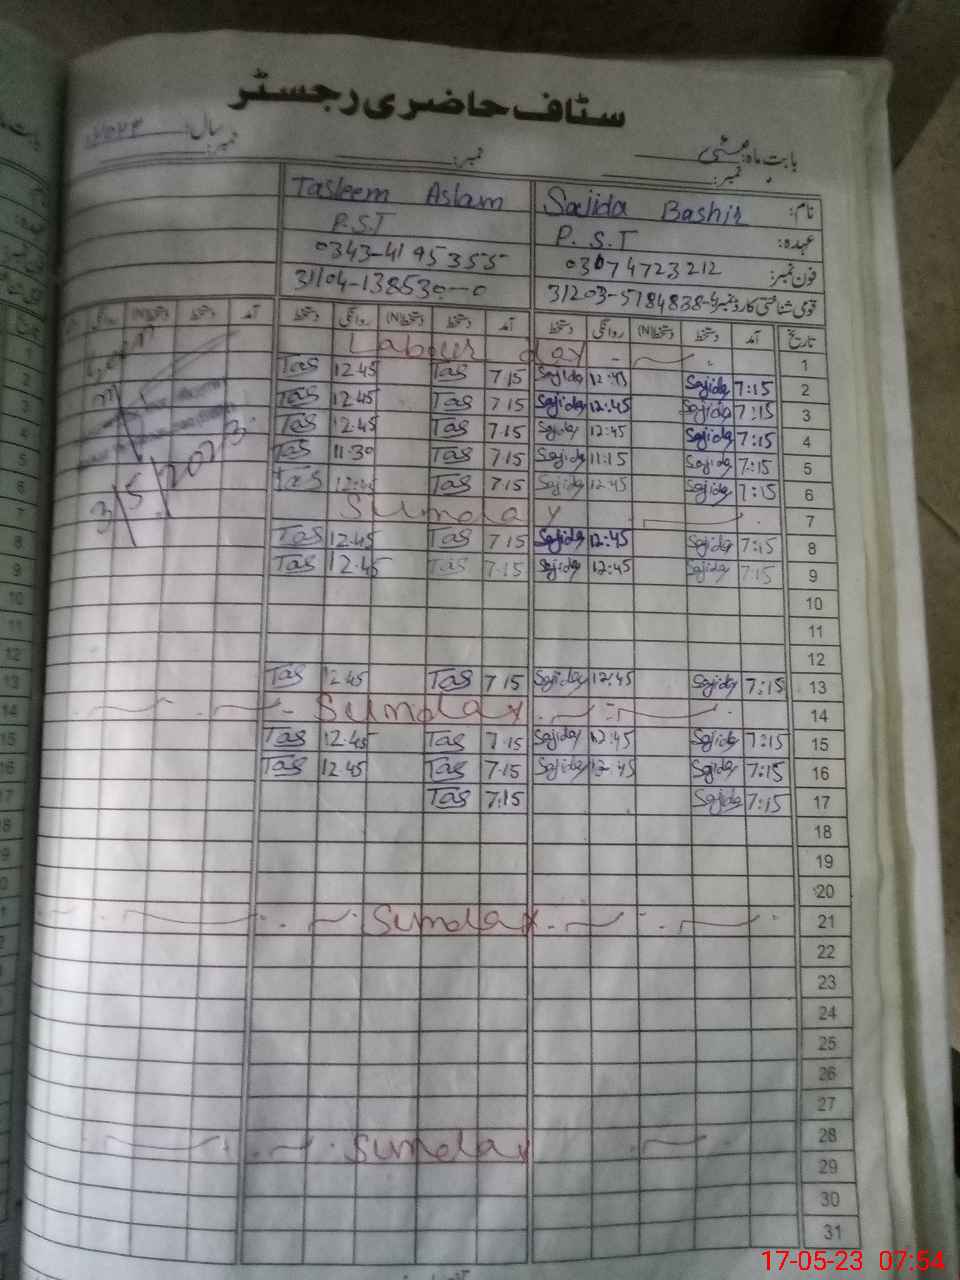 سٹاف حاضری رجسٹر
بابت ماہ: مئی نمبر: سال:
نمبر: نمبر:
نام: Sajida Bashir Tasleem Aslam
عہدہ: P.S.T P.S.T
فون نمبر: 03074723212 0343-4195355
قومی شناختی کارڈ نمبر 31203-5184838-4
تاریخ آمد دستخط دستخط(N) روانگی دستخط آمد دستخط دستخط(N) روانگی دستخط آمد دستخط دستخط(N) روانگی
Labour day 1
Tas 12.45 Tas 7.15 Sajida 12:45 Sajida 7:15 2
Tas 12.45 Tas 7.15 Sajida 12:45 Sajida 7:15 3
Tas 12.45 Tas 7.15 Sajida 12:45 Sajida 7:15 4
Tas 11.30 Tas 7.15 Sajida 11:15 Sajida 7:15 5
Tas Tas 7.15 Sajida 12:45 Sajida 7:15 6
Sunday 7
Tas 12.45 Tas 7.15 Sajida 12:45 Sajida 7:15 8
Tas 12.45 Tas 7.15 Sajida 12:45 Sajida 7:15 9
10
11
12
Tas 12.45 Tas 7.15 Sajida 12:45 Sajida 7:15 13
Sunday 14
Tas 12.45 Tas 7.15 Sajida 12:45 Sajida 7:15 15
Tas 12.45 Tas 7.15 Sajida 12:45 Sajida 7:15 16
Tas 7.15 Sajida 7:15 17
18
19
20
Sunday 21
22
23
24
25
26
27
Sunday 28
29
30
31
3/5/2023
17-05-23 07:54